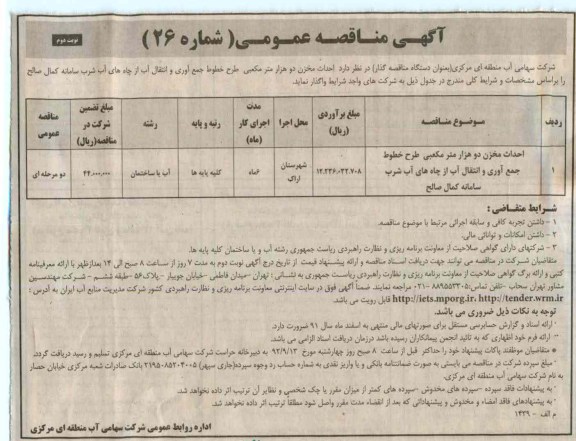 آگهی مناقصه عمومی( شماره ۲۶ )
نوبت دوم
شرکت سهامی آب منطقه ای مرکزی(بعنوان دستگاه مناقصه گذار) در نظر دارد احداث مخزن دو هزار متر مکعبی طرح خطوط جمع آوری و انتقال آب از چاه های آب شرب سامانه کمال صالح
را براساس مشخصات و شرایط کلی مندرج در جدول ذیل به شرکت های واجد شرایط واگذار نماید.
ردیف
موضوع مناقصه
مبلغ برآوردی (ریال)
محل اجرا
مدت اجرای کار (ماه)
رتبه و پایه
رشته
مبلغ تضمین شرکت در مناقصه(ریال)
مناقصه عمومی
۱
احداث مخزن دو هزار متر مکعبی طرح خطوط
جمع آوری و انتقال آب از چاه های آب شرب
سامانه کمال صالح
شهرستان اراک
۶ماه
کلیه پایه ها
آب یا ساختمان
۴۴۰.۰۰۰.۰۰۰
دو مرحله ای
شرایط متقاضی :
۱ - داشتن تجربه کافی و سابقه اجرائی مرتبط با موضوع مناقصه.
۲ - داشتن امکانات و توانائی مالی.
۳ - شرکتهای دارای گواهی صلاحیت از معاونت برنامه ریزی و نظارت راهبردی ریاست جمهوری رشته آب و یا ساختمان کلیه پایه ها.
متقاضیان شرکت در مناقصه می توانند جهت دریافت اسناد مناقصه و ارائه پیشنهاد قیمت از تاریخ درج آگهی نوبت دوم به مدت ۷ روز از ساعت ۸ صبح الی ۱۴ بعدازظهر با ارائه معرفینامه
کتبی و ارائه برگ گواهی صلاحیت از معاونت برنامه ریزی و نظارت راهبردی ریاست جمهوری به نشانی : تهران - میدان فاطمی - خیابان جویبار - پلاک ۵۶ -طبقه ششم - شرکت مهندسین
مشاور تهران سحاب -تلفن تماس: ۰۲۱ مراجعه نمایند. ضمناً آگهی فوق در سایت اینترنتی معاونت برنامه ریزی و نظارت راهبردی کشور شرکت مدیریت منابع آب ایران به آدرس :
http://iets.mporg.ir، http://tender.wrm.ir قابل رویت می باشد.
توجه به نکات ذیل ضروری می باشد.
- ارائه اسناد و گزارش حسابرسی مستقل برای صورتهای مالی منتهی به اسفند ماه سال ۹۱ ضرورت دارد.
- ارائه فرم خود اظهاری که به تائید انجمن پیمانکاران رسیده باشد درزمان دریافت اسناد الزامی می باشد.
* متقاضیان موظفند پاکات پیشنهاد خود را حداکثر قبل از ساعت ۸ صبح روز چهارشنبه مورخ ۹۲/۹/۱۳ به دبیرخانه حراست شرکت آب منطقه ای مرکزی تسلیم و رسید دریافت گردد.
- مبلغ سپرده شرکت در مناقصه می بایستی به صورت ضمانتنامه بانکی و یا واریز نقدی به شماره حساب رد وجوه سپرده(جاری سپهر) بانک صادرات شعبه مرکزی خیابان حصار
به نام شرکت سهامی آب منطقه ای مرکزی.
- به پیشنهادات فاقد سپرده -سپرده های مخدوش -سپرده های کمتر از میزان مقرر یا چک شخصی و نظایر آن ترتیب اثر داده نخواهد شد.
- به پیشنهادهای فاقد امضاء و مخدوش و پیشنهاداتی که بعد از انقضاء مدت مقرر واصل شود مطلقاً ترتیب اثر داده نخواهد شد.
م الف - ۱۴۳۹
اداره روابط عمومی شرکت سهامی آب منطقه ای مرکزی